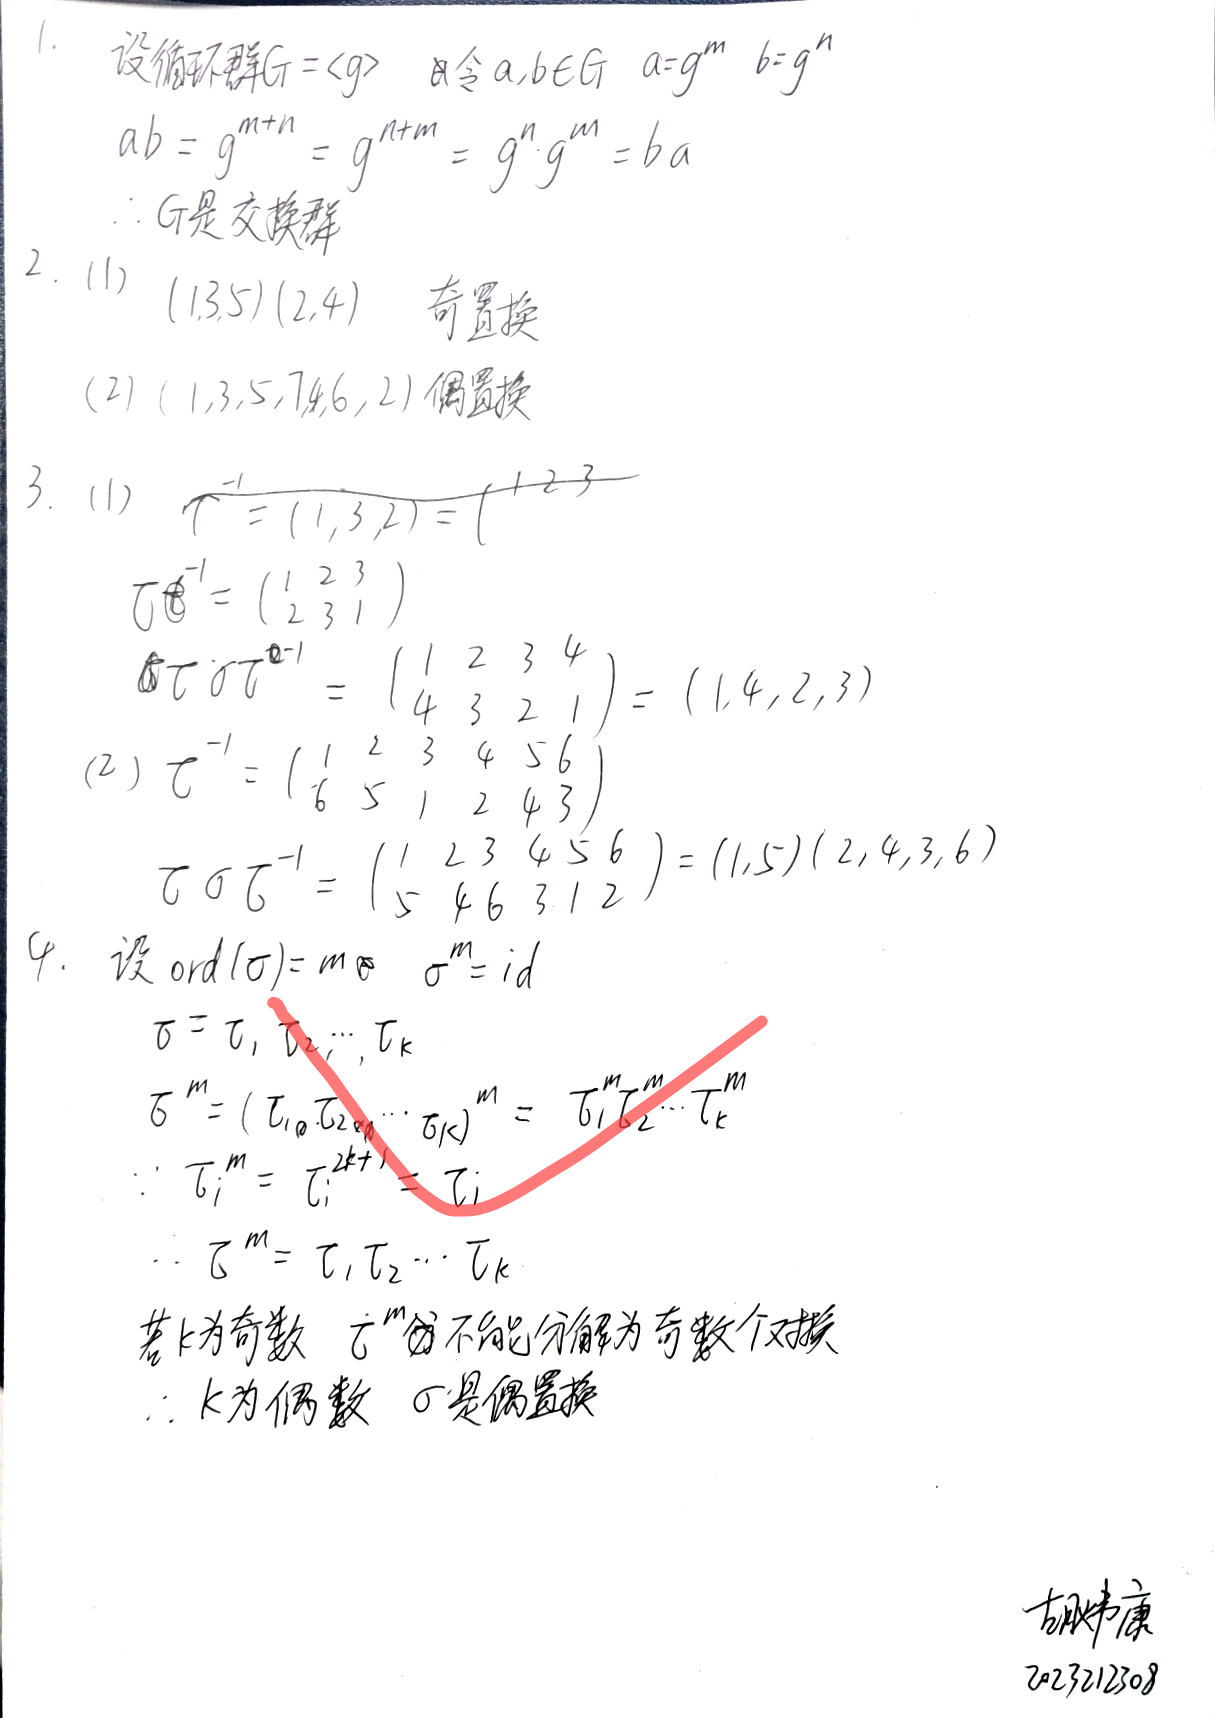 1. 设循环群G=<g> 令a,b∈G a=g^m b=g^n
ab = g^{m+n} = g^{n+m} = g^n·g^m = b·a
∴ G是交换群
2. (1) (1,3,5)(2,4) 奇置换
(2) (1,3,5,7,4,6,2) 偶置换
3. (1) τ^{-1} = (1,3,2) = ( 1 2 3
τ^{-1} = (1 2 3
2 3 1)
τστ^{-1} = (1 2 3 4
4 3 2 1) = (1,4,2,3)
(2) τ^{-1} = (1 2 3 4 5 6
6 5 1 2 4 3)
τστ^{-1} = (1 2 3 4 5 6
5 4 6 3 1 2) = (1,5)(2,4,3,6)
4. 设 ord(σ)=m σ^m=id
σ = τ₁ τ₂, …, τ_k
σ^m = (τ₁·τ₂…τ_k)^m = τ₁^m τ₂^m … τ_k^m
∵ τ_i^m = τ_i^{2k+1} = τ_i
∴ σ^m = τ₁τ₂…τ_k
若k为奇数 σ^m 不能分解为奇数个对换
∴ k为偶数 σ是偶置换
胡炜康
2023212308